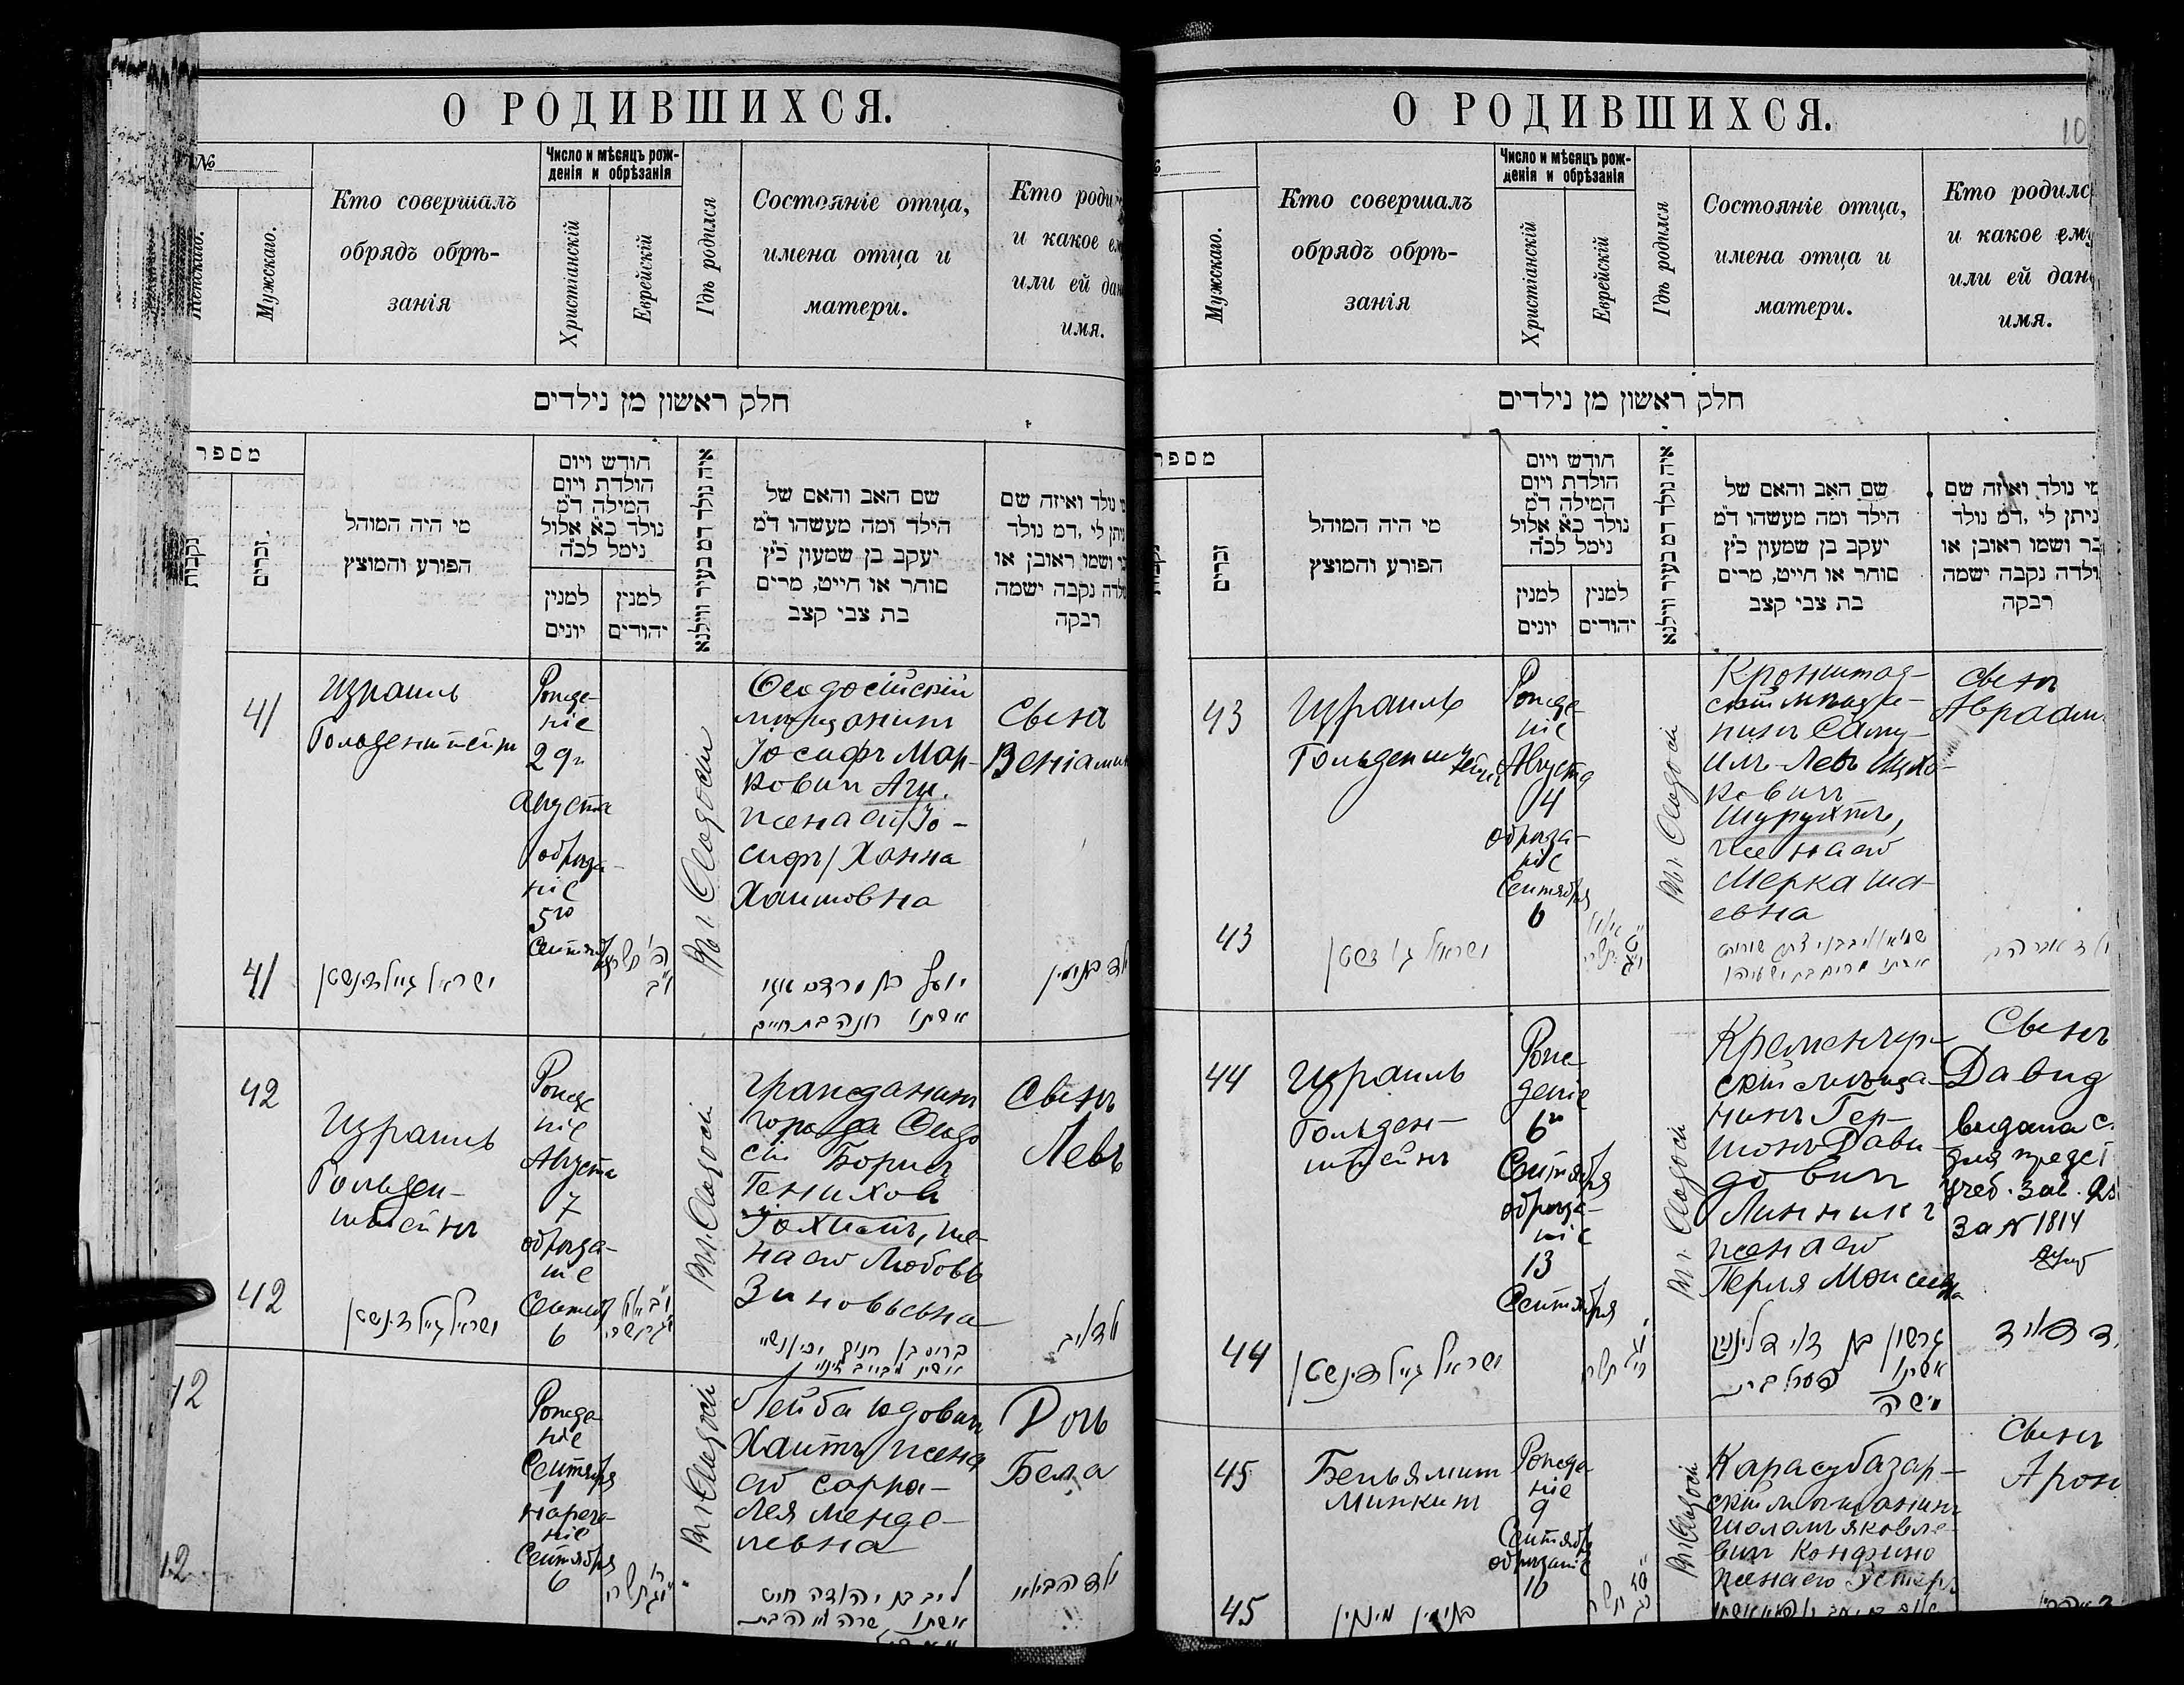 О РОДИВШИХСЯ.
№
Женскаго.
Мужскаго.
Кто совершалъ
обрядъ обрѣ-
занія
Число и мѣсяцъ рож-
денія и обрѣзанія
Христіанскій
Еврейскій
Гдѣ родился
Состояніе отца,
имена отца и
матери.
Кто роди
и какое ем
или ей дан
имя.
חלק ראשון מן נילדים
מספר
נקבות
זכרים.
מי היה המוהל
הפורע והמוצץ
חודש ויום
הולדת ויום
המילה ד״מ
נולד כ״א אלול
נימל לכ״ה
למנין
יונים
למנין
יהודים
איה נולד דמ בעיר ווילנא
שם האב והאם של
הילד ומה מעשהו ד״מ
יעקב בן שמעון כ״ץ
סוחר או חייט, מרים
בת צבי קצב
נולד ואיזה שם
ניתן לי ,דמ נולד
ושמו ראובן או
נקבה ישמה
רבקה
41
Израиль
Гольденштейн
Рожде-
ніе
29го
Августа
обрѣза-
ніе
5го
Сентября
Въ г. Ѳеодосіи
Ѳеодосійскій
мѣщанинъ
Іосифъ Мар-
ковичъ Аги.
жена его /Іо-
сифъ/ Ханна
Хаимовна
Сына
Веніаминъ
41
ישראל גיילדינשטן
אשתו חנה בת חיים
42
Израиль
Гольден-
штейнъ
Рожде
ніе
Августа
7
обрѣза-
ніе
Сентяб
6
Въ г. Ѳеодосіи
Гражданинъ
города Ѳеодо
сіи Борисъ
Гениховъ
Іохимъ, же-
на его Любовь
Зиновьевна
Сынъ
Левъ
42
ישראל גיילדינשטן
12
Рожде
ніе
Сентября
1
нарече-
ніе
Сентября
6
Въ г. Ѳеодосіи
Лейба Юдовичъ
Хаитъ, жена
его Сарра-
Лея Менде-
левна
Дочь
Бела
12
ליב בן יהודה חייט
אשתו שרה לאה בת
О РОДИВШИХСЯ.
10
№
Мужскаго.
Кто совершалъ
обрядъ обрѣ-
занія
Число и мѣсяцъ рож-
денія и обрѣзанія
Христіанскій
Еврейскій
Гдѣ родился
Состояніе отца,
имена отца и
матери.
Кто родилс
и какое ему
или ей дан
имя.
חלק ראשון מן נילדים
מספר
זכרים
מי היה המוהל
הפורע והמוצץ
חודש ויום
הולדת ויום
המילה ד״מ
נולד כ״א אלול
נימל לכ״ה
למנין
יונים
למנין
יהודים
איה נולד דמ בעיר ווילנא
שם האב והאם של
הילד ומה מעשהו ד״מ
יעקב בן שמעון כ״ץ
סוחר או חייט, מרים
בת צבי קצב
מי נולד ואיזה שם
ניתן לי ,דמ נולד
ושמו ראובן או
נקבה ישמה
רבקה
43
Израиль
Гольденштейн
Рожде
ніе
Августа
14
обрѣза-
ніе
Сентября
6
Въ г. Ѳеодосіи
Кронштад-
скій мѣща-
нинъ Саму-
илъ-Левъ Ицхо-
ковичъ
Шурухтъ,
жена его
Мерка Ша-
евна
Сынъ
Авраам
43
44
Израиль
Гольден-
штейнъ
Рож-
деніе
6го
Сентября
обрѣза-
ніе
13
Сентября
Въ г. Ѳеодосіи
Кременчуг-
скій мѣща-
нинъ Гер-
шонъ Дави-
довичъ
Линникъ
жена его
Перля Моисеевна
Сынъ
Давид
видана с.
для предст
учеб. зав.
за № 1814
44
ישראל גיילדינשטן
45
Беньямин
Минкин
Рожде
ніе
9
Сентября
обрѣзаніе
16
Въ г. Ѳеодосіи
Карасубазар-
скій мѣщанинъ
Шаломъ Яковле-
вичъ Конфино
жена его Эстеръ
Сынъ
Арон
45
בנימין מינקין